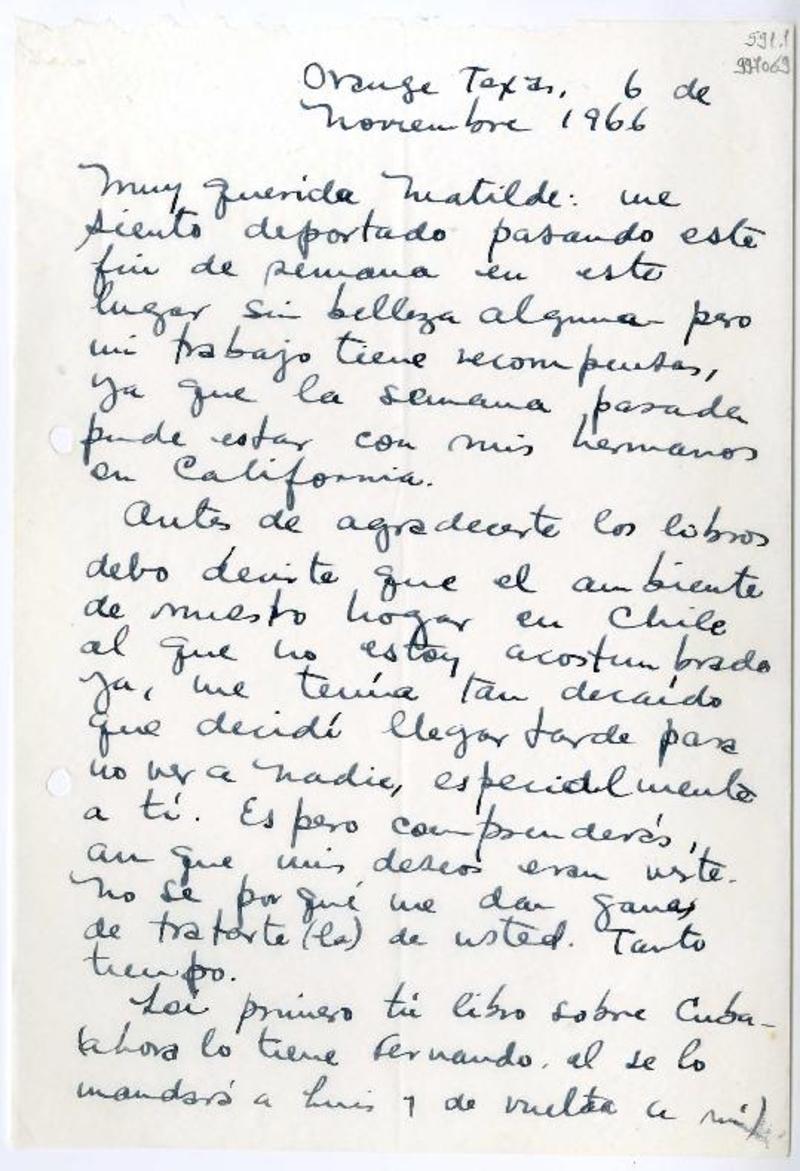 591.1
997069
Orange Texas, 6 de
Noviembre 1966
Muy querida Matilde: me
siento deportado pasando este
fin de semana en este
lugar sin belleza alguna pero
mi trabajo tiene recompensas,
ya que la semana pasada
pude estar con mis hermanos
en California.
Antes de agradecerte los libros
debo decirte que el ambiente
de nuestro hogar en Chile
al que no estoy acostumbrado
ya, me tenía tan decaído
que decidí llegar tarde para
no ver a nadie, especialmente
a tí. Espero comprenderás,
aunque mis deseos eran verte.
No se por qué me dan ganas
de tratarte (la) de usted. Tanto
tiempo.
Leí primero tú libro sobre Cuba-
(ahora lo tiene Fernando. el se lo
mandará a Luis y de vuelta a mí)